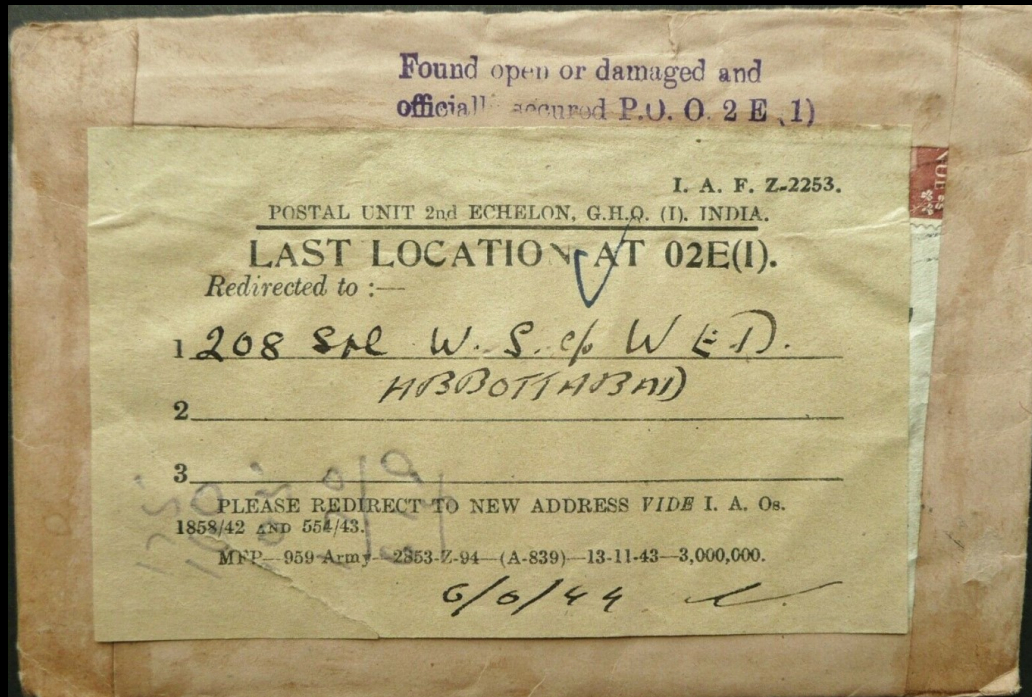 Found open or damaged and
officially secured P.O. O. 2 E (1)
I. A. F. Z-2253.
POSTAL UNIT 2nd ECHELON, G.H.Q. (I). INDIA.
LAST LOCATION AT 02E(I).
Redirected to :—
1 208 Spl W. S. c/o W E D.
ABBOTTABAD
2
3
PLEASE REDIRECT TO NEW ADDRESS VIDE I. A. Os.
1858/42 AND 554/43.
MFP—959 Army—2353-Z-94—(A-839)—13-11-43—3,000,000.
6/6/44